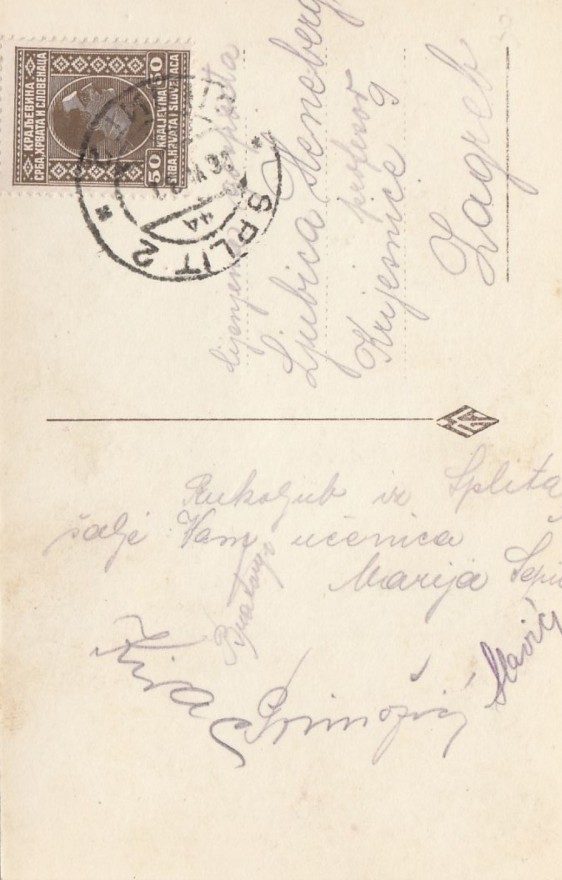 КРАЉЕВИНА
СРБА, ХРВАТА И СЛОВЕНАЦА
50 50
KRALJEVINA
SRBA, HRVATA I SLOVENACA
SPLIT 2
Ljubica Heneberg
profesor
Krijesnice 9
Zagreb
Rukoljub iz Splita
šalje Vam učenica
Marija
Kira
Primožić
Slavić